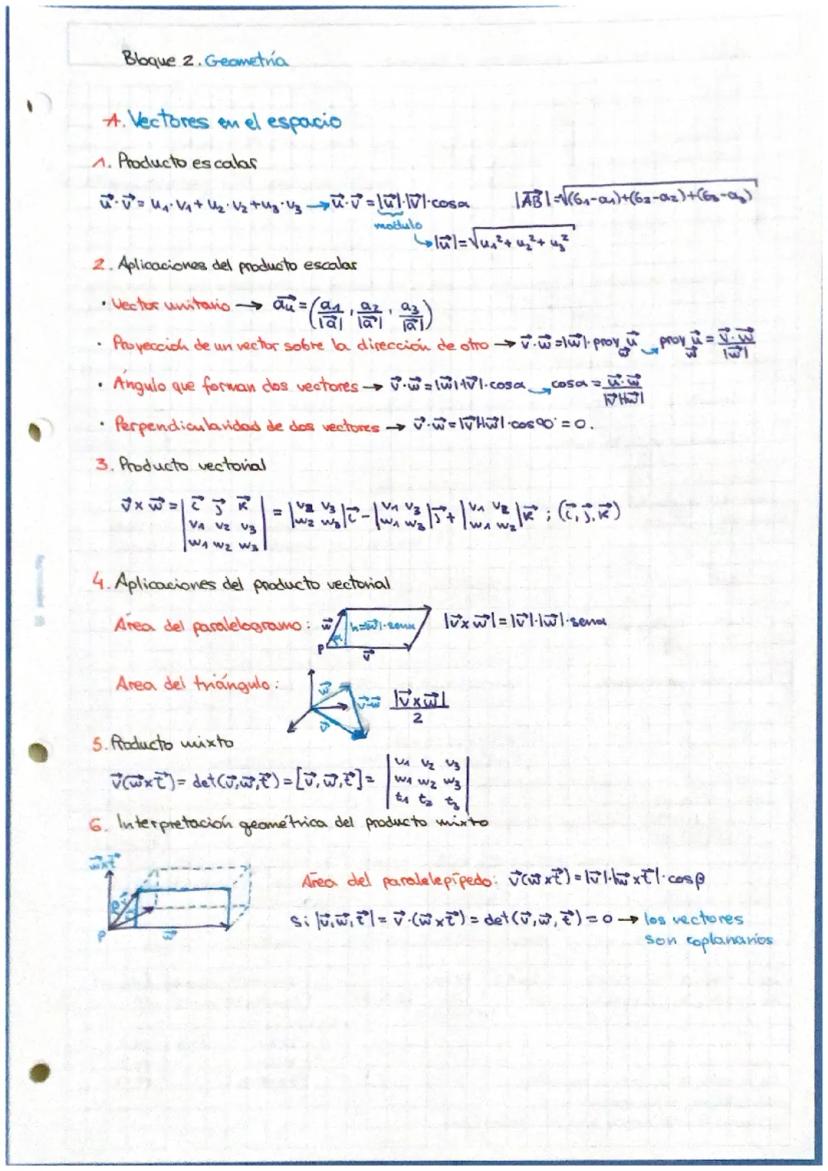 Bloque 2. Geometría
A. Vectores en el espacio
1. Producto escalar
u⃗·v⃗ = u₁·v₁ + u₂·v₂ + u₃·v₃ → u⃗·v⃗ = |u⃗|·|v⃗|·cosα |AB⃗| = √(b₁-a₁)+(b₂-a₂)+(b₃-a₃)
modulo
↳ |u⃗| = √u₁²+u₂²+u₃²
2. Aplicaciones del producto escalar
· Vector unitario → a⃗u = (a₁/|a⃗|, a₂/|a⃗|, a₃/|a⃗|)
· Proyección de un vector sobre la dirección de otro → v⃗·w⃗ = |w⃗|·proy w⃗ u⃗ → proy w⃗ u⃗ = v⃗·w⃗/|w⃗|
· Angulo que forman dos vectores → v⃗·w⃗ = |w⃗|·|v⃗|·cosα → cosα = u⃗·w⃗/|v⃗|·|w⃗|
· Perpendicularidad de dos vectores → v⃗·w⃗ = |v⃗|·|w⃗|·cos90° = 0.
3. Producto vectorial
v⃗ x w⃗ = |i⃗ j⃗ k⃗| = |v₂ v₃| i⃗ - |v₁ v₃| j⃗ + |v₁ v₂| k⃗ ; (i⃗, j⃗, k⃗)
|v₁ v₂ v₃| |w₂ w₃| |w₁ w₃| |w₁ w₂|
|w₁ w₂ w₃|
4. Aplicaciones del producto vectorial
Area del paralelogramo: w⃗ h=|w⃗|·senα P v⃗ |v⃗ x w⃗| = |v⃗|·|w⃗|·senα
Area del triángulo: w⃗ v⃗-w⃗ v⃗ |v⃗ x w⃗|/2
5. Producto mixto
v⃗(w⃗ x t⃗) = det(v⃗,w⃗,t⃗) = [v⃗, w⃗, t⃗] = |v₁ v₂ v₃|
|w₁ w₂ w₃|
|t₁ t₂ t₃|
6. Interpretación geométrica del producto mixto
w⃗ x t⃗
β
P w⃗
Área del paralelepípedo: v⃗(w⃗ x t⃗) = |v⃗|·|w⃗ x t⃗|·cosβ
Si |v⃗,w⃗,t⃗| = v⃗·(w⃗ x t⃗) = det(v⃗, w⃗, t⃗) = 0 → los vectores
son coplanarios